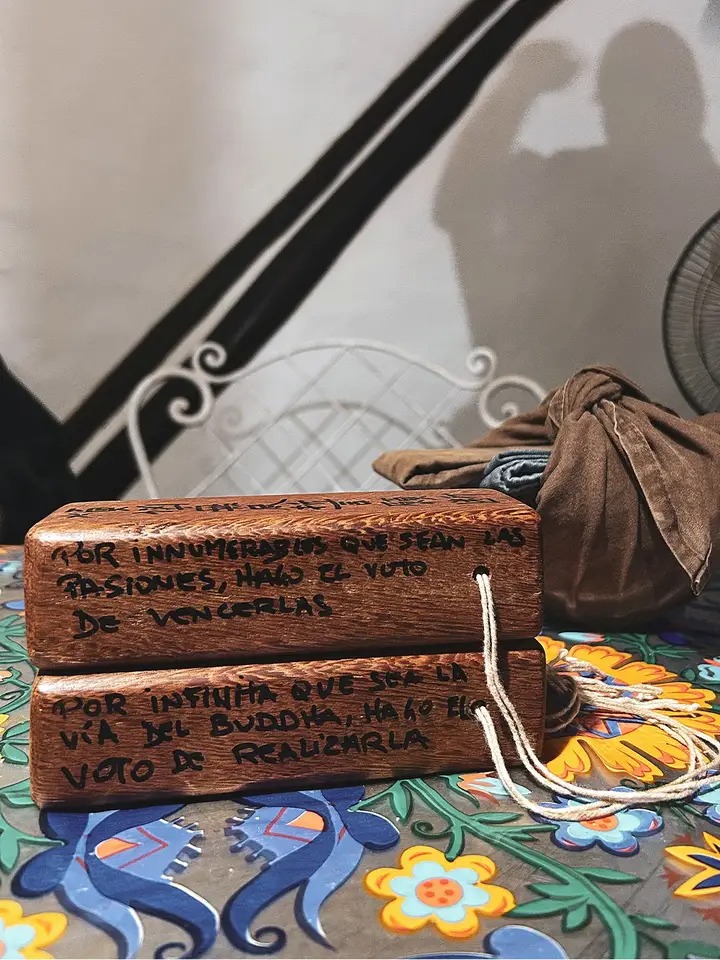 POR INNUMERABLES QUE SEAN LAS
PASIONES, HAGO EL VOTO
DE VENCERLAS
POR INFINITA QUE SEA LA
VÍA DEL BUDDHA, HAGO EL
VOTO DE REALIZARLA